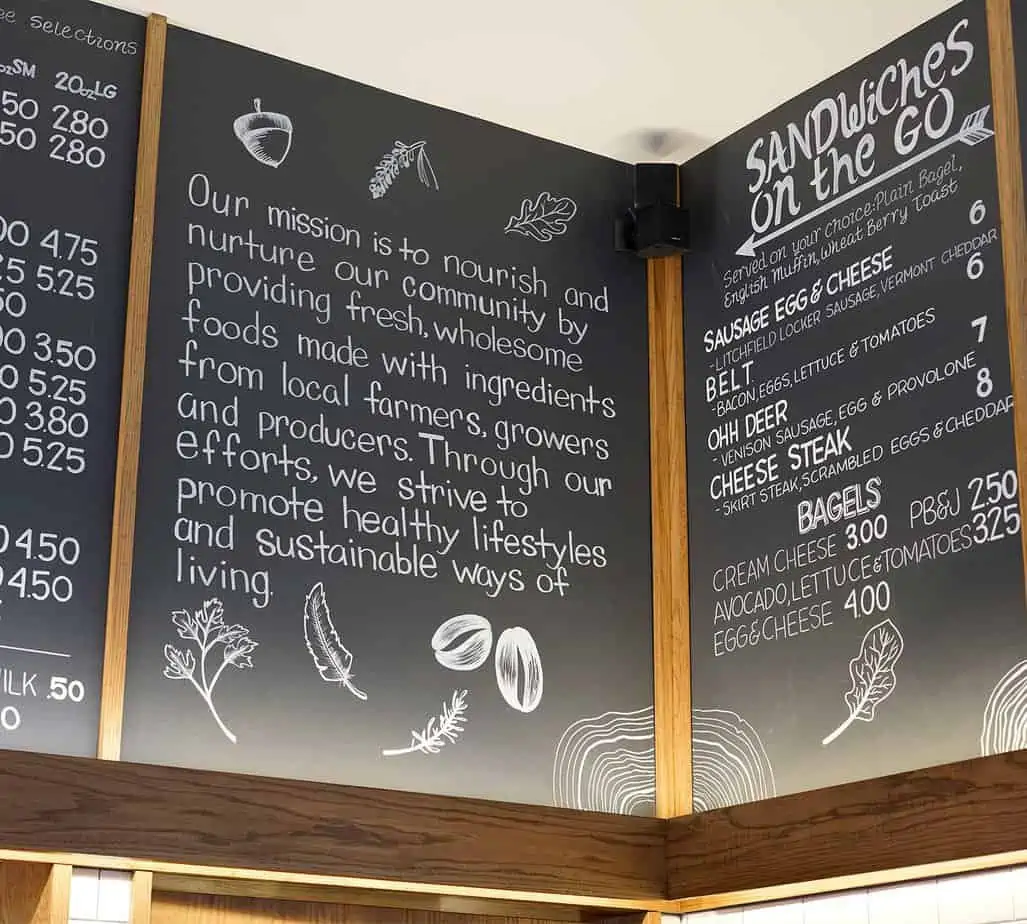 ee Selections
ozSM 20ozLG
50 2.80
50 2.80
00 4.75
5 5.25
50
00 3.50
0 5.25
0 3.80
0 5.25
0 4.50
0 4.50
ILK .50
0
Our mission is to nourish and
nurture our community by
providing fresh, wholesome
foods made with ingredients
from local farmers, growers
and producers. Through our
efforts, we strive to
promote healthy lifestyles
and sustainable ways of
living.
SANDWiCHes
on the GO
Served on your choice: Plain Bagel,
English Muffin, Wheat Berry Toast
SAUSAGE EGG & CHEESE 6
-LITCHFIELD LOCKER SAUSAGE, VERMONT CHEDDAR
BELT 6
-BACON, EGGS, LETTUCE & TOMATOES
OHH DEER 7
-VENISON SAUSAGE, EGG & PROVOLONE
CHEESE STEAK 8
-SKIRT STEAK, SCRAMBLED EGGS & CHEDDAR
BAGELS
CREAM CHEESE 3.00 PB&J 2.50
AVOCADO, LETTUCE & TOMATOES 3.25
EGG & CHEESE 4.00